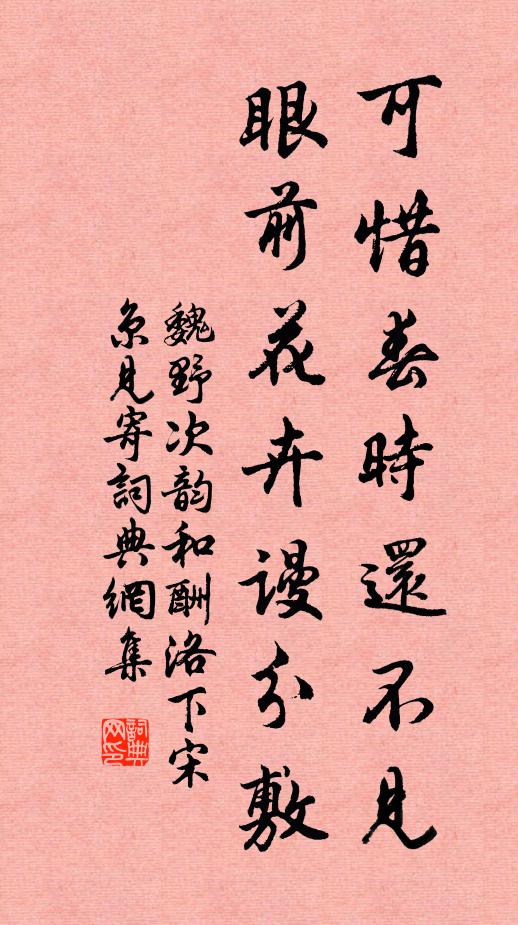 可惜春時還不見
眼前花卉謾分敷
魏野次韵和酬洛下宋
京見寄詞典網集
詞典網印